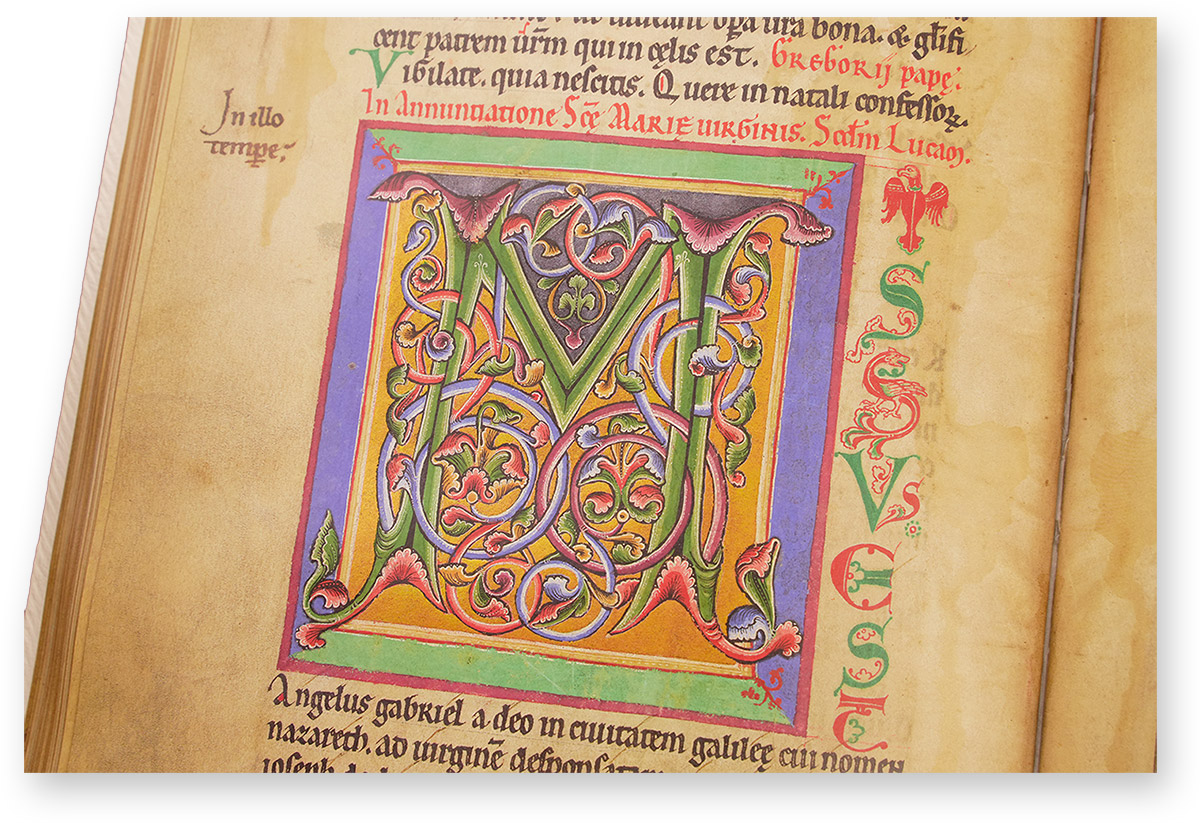 ut videant opa ura bona. & glifi
cent patrem urm qui in cęlis est. Gregorij papę.
Vigilate. quia nescitis. Quere in natali confessorꝝ.
In illo
tempe.
In Annuntiatione Scę Marię uirginis. Scdm Lucam.
M
ISSVS EST
Angelus gabriel a deo in ciuitatem galilęę cui nomen
nazareth. ad uirginē desponsatam
ioseph